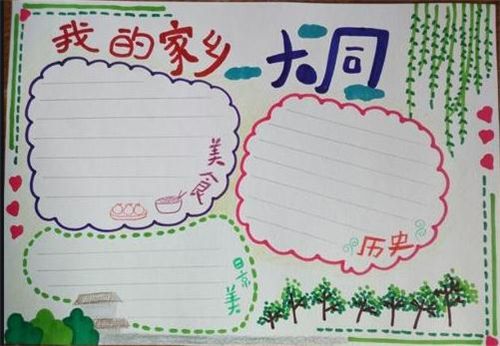 我的家乡 大同
美食
历史
美景